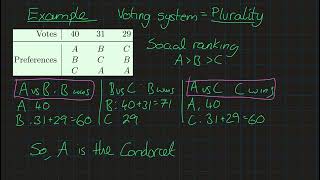 Example Voting system = Plurality
Votes 40 31 29
Preferences
A B C
B C B
C A A
Social ranking
A > B > C
A vs B : B wins
A: 40
B: 31 + 29 = 60
B vs C : B wins
B: 40 + 31 = 71
C 29
A vs C C wins
A: 40
C: 31 + 29 = 60
So, A is the Condorcet